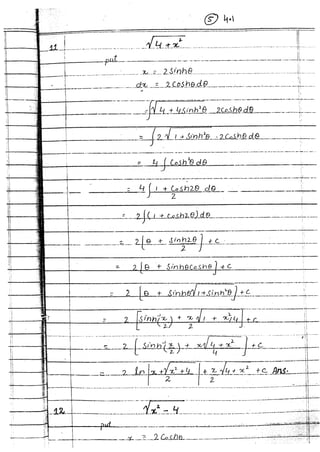 ⑤ 4.1
11 √4+x²
put
x = 2 sinhθ
dx = 2 coshθ dθ
∫√4 + 4 sinh²θ 2 coshθ dθ
= ∫2√1 + sinh²θ · 2 coshθ dθ
= 4 ∫ cosh²θ dθ
= 4 ∫ 1 + cosh2θ / 2 dθ
= 2 ∫(1 + cosh2θ) dθ
= 2 [θ + sinh2θ / 2] + c
= 2 [θ + sinhθ coshθ] + c
= 2 [θ + sinhθ √1 + sinh²θ] + c
= 2 [sinh⁻¹(x/2) + x/2 √1 + x²/4] + c
= 2 [sinh⁻¹(x/2) + x√4 + x² / 4] + c
= 2 ln |x + √x² + 4 / 2| + x/2 √4 + x² + c Ans.
12 √x² - 4
put
x = 2 coshθ